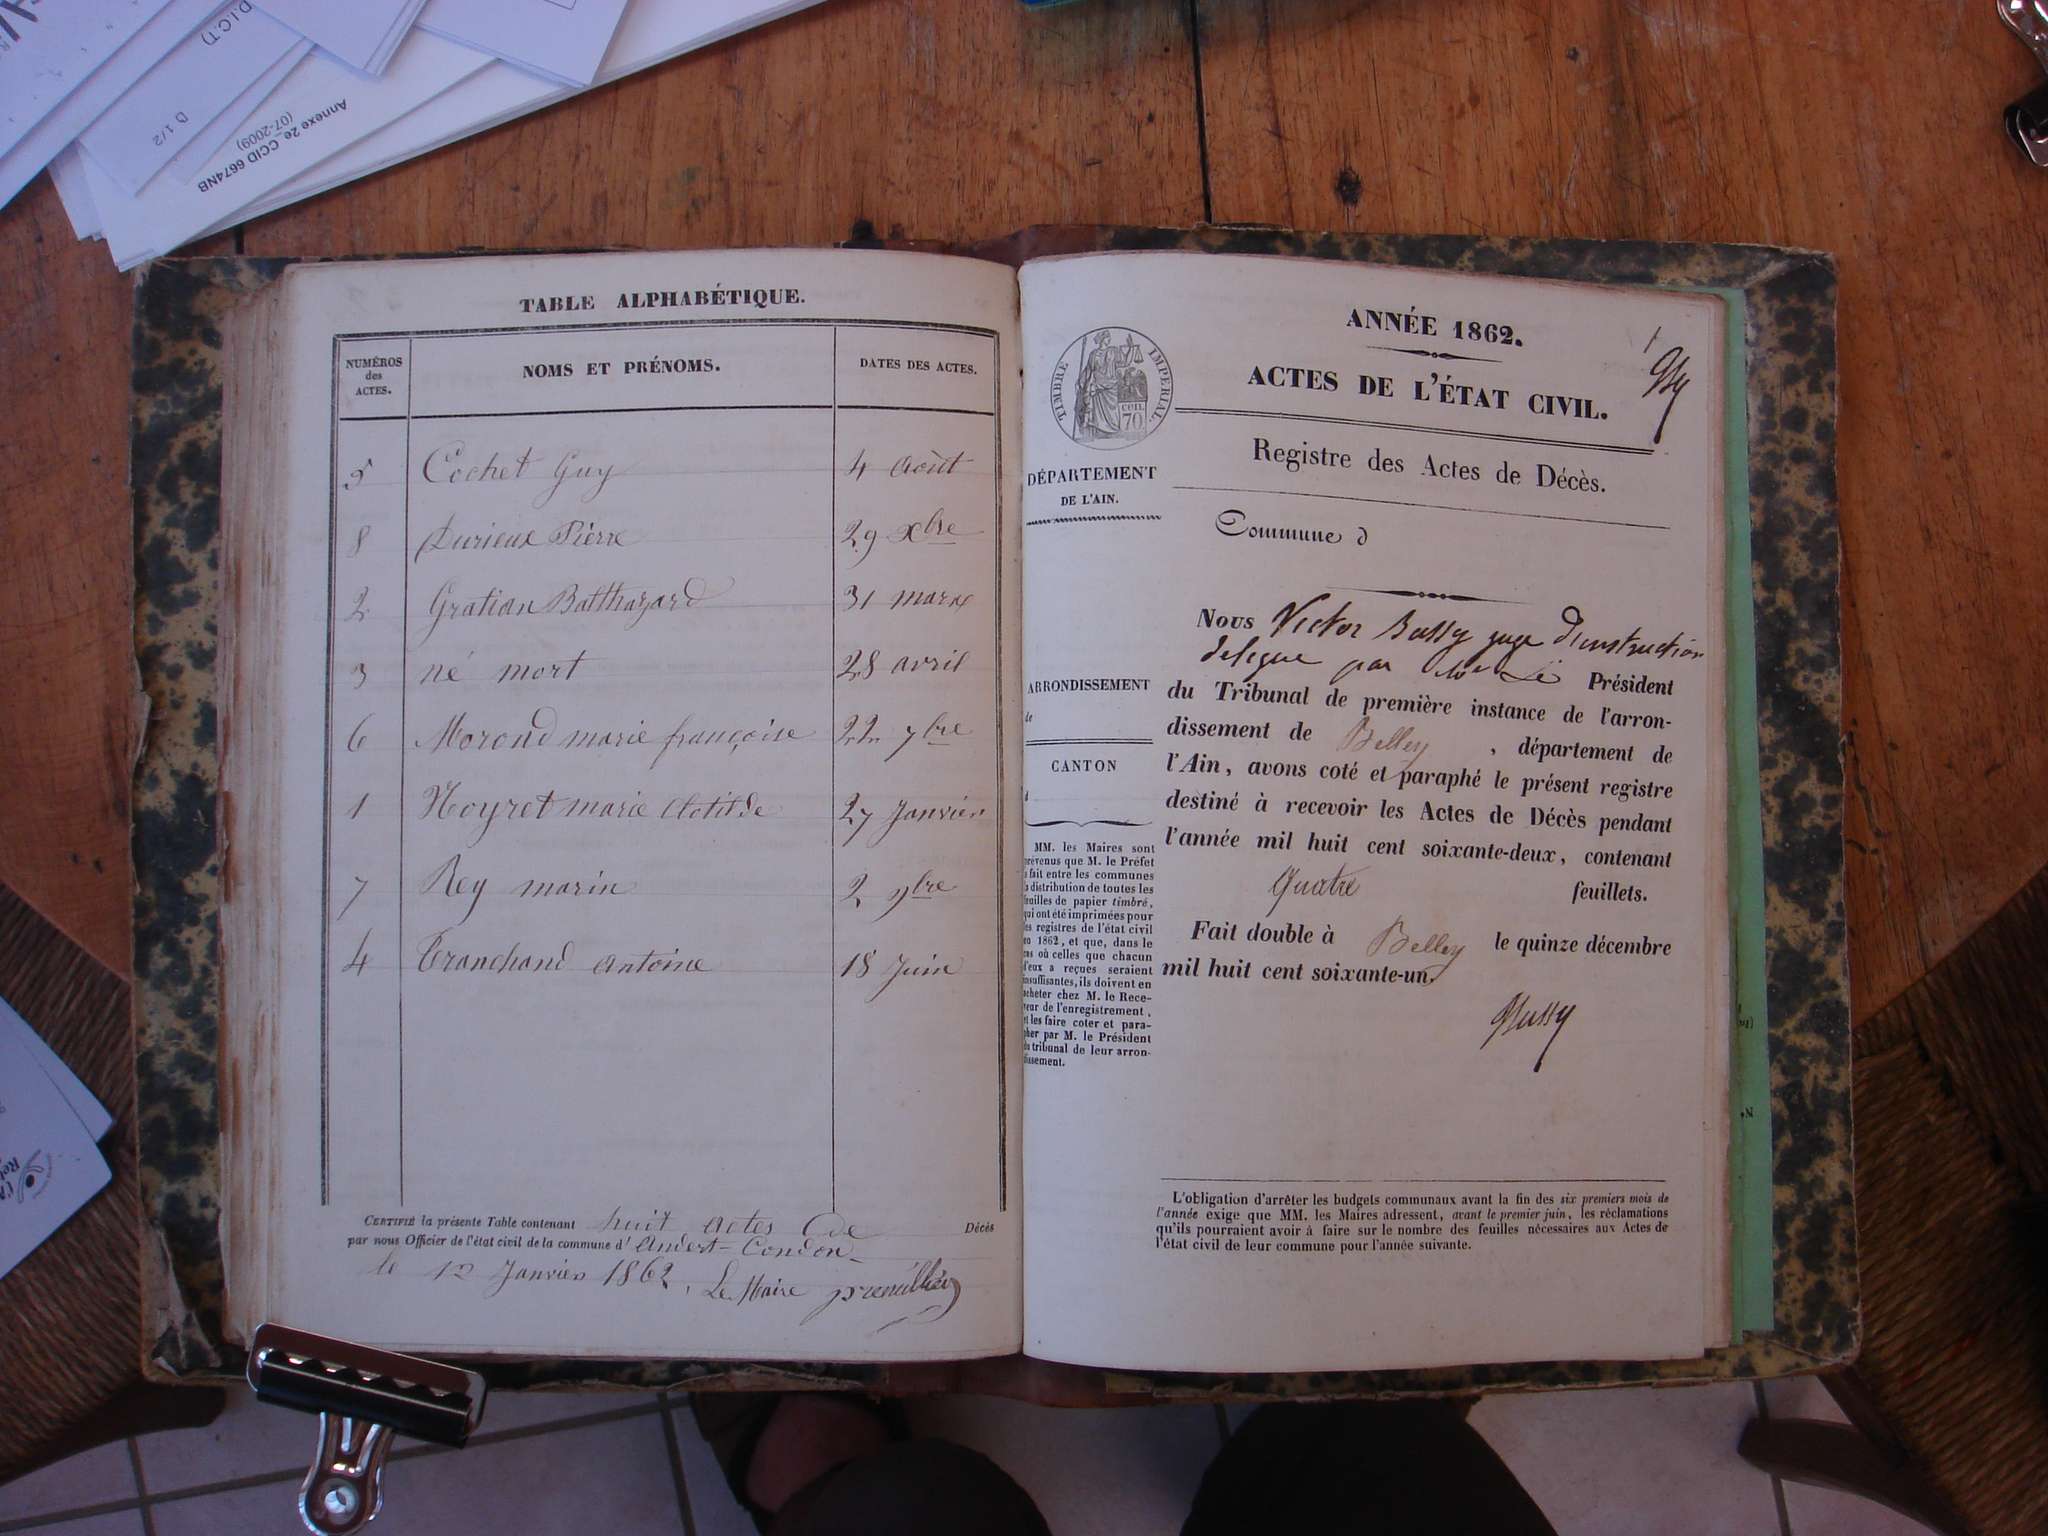 D.I.C.T)
D 1/2
Annexe 2e_CCID 6674NB
(07-2009)
TABLE ALPHABÉTIQUE.
NUMÉROS des ACTES. NOMS ET PRÉNOMS. DATES DES ACTES.
5 Cochet Guy 4 Août
8 Durieux Pierre 29 Xbre
2 Gratian Balthazard 31 marx
3 né mort 28 avril
6 Morond marie françoise 22 7bre
1 Noyret marie Clotilde 27 Janvier
7 Rey marin 2 9bre
4 Tranchand Antoine 18 Juin
CERTIFIÉ la présente Table contenant huit actes de Décès
par nous Officier de l'état civil de la commune d' Andert-Condon
le 1er Janvier 1862, Le Maire
ANNÉE 1862.
1
ACTES DE L'ÉTAT CIVIL.
TIMBRE IMPERIAL
CEN. 70
Registre des Actes de Décès.
DÉPARTEMENT
DE L'AIN.
Commune d
ARRONDISSEMENT
de
CANTON
d
MM. les Maires sont
prévenus que M. le Préfet
a fait entre les communes
la distribution de toutes les
feuilles de papier timbré,
qui ont été imprimées pour
les registres de l'état civil
en 1862, et que, dans le
cas où celles que chacun
d'eux a reçues seraient
insuffisantes, ils doivent en
acheter chez M. le Rece-
veur de l'enregistrement,
et les faire coter et para-
pher par M. le Président
du tribunal de leur arron-
dissement.
Nous Victor Bussy juge d'instruction
delegue par Mr Le Président
du Tribunal de première instance de l'arron-
dissement de Belley, département de
l'Ain, avons coté et paraphé le présent registre
destiné à recevoir les Actes de Décès pendant
l'année mil huit cent soixante-deux, contenant
Quatre feuillets.
Fait double à Belley le quinze décembre
mil huit cent soixante-un.
Bussy
L'obligation d'arrêter les budgets communaux avant la fin des six premiers mois de
l'année exige que MM. les Maires adressent, avant le premier juin, les réclamations
qu'ils pourraient avoir à faire sur le nombre des feuilles nécessaires aux Actes de
l'état civil de leur commune pour l'année suivante.